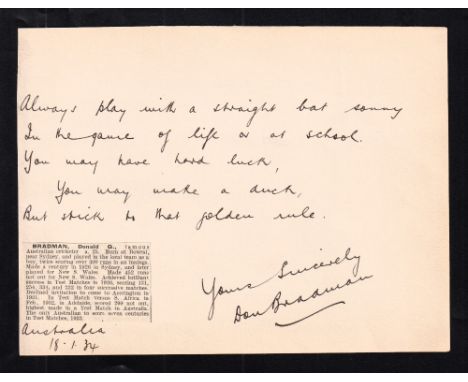 Always play with a straight bat sonny
In the game of life or at school.
You may have hard luck,
You may make a duck,
But stick to that golden rule.
BRADMAN, Donald G., famous
Australian cricketer b. Born at Bowral,
near Sydney, and played in the local team as a
boy, twice scoring over 300 runs in an innings.
Made a century in 1926 in Sydney, and later
played for New S. Wales. Made 452 runs
not out for New S. Wales. Achieved brilliant
success in Test Matches in 1930, scoring 131,
254, 334, and 232 in four successive matches.
Declined invitation to come to Accrington in
1931. In Test Match versus S. Africa in
Feb., 1932, in Adelaide, scored 299 not out,
highest made in a Test Match in Australia.
The only Australian to score seven centuries
in Test Matches, 1932.
Yours Sincerely
Don Bradman
Australia
18.1.34